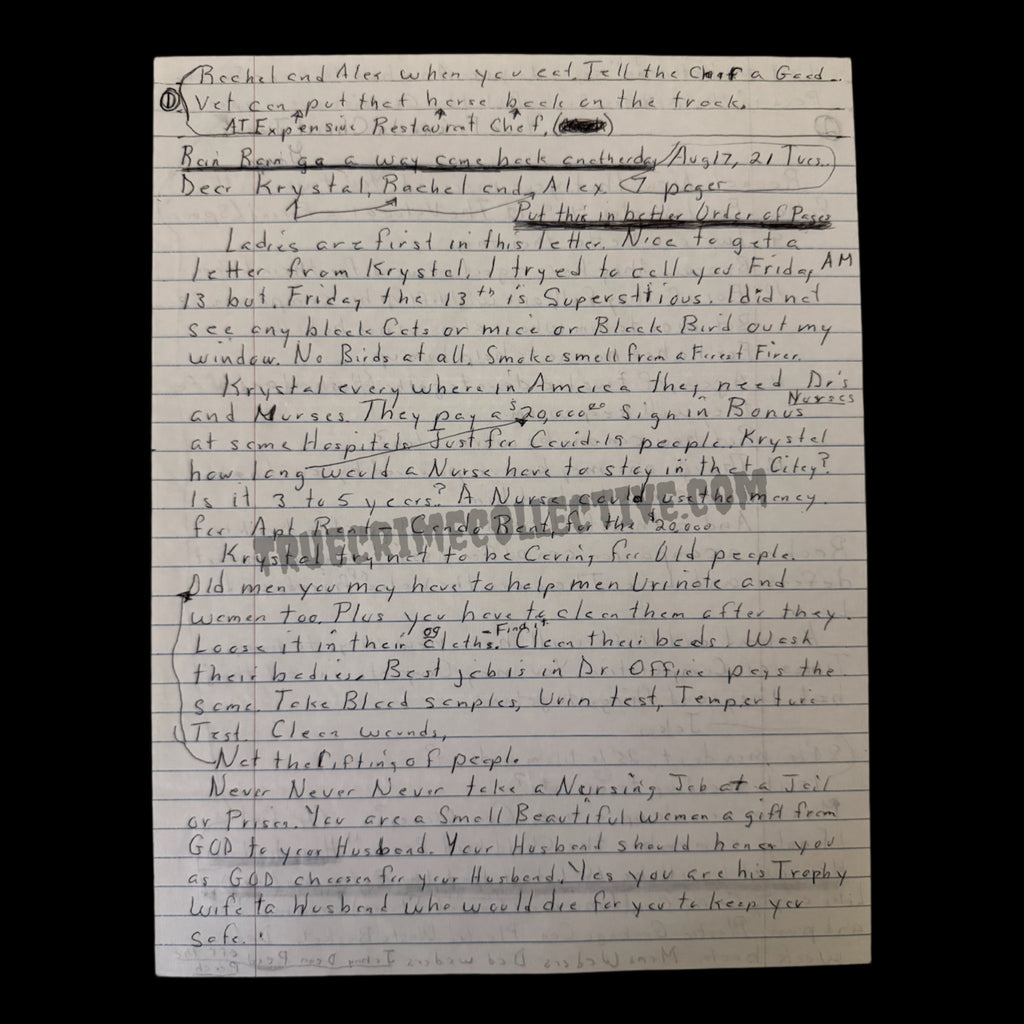 Rachel and Alex when you eat. Tell the Chef a Good
① Vet can put that horse back on the track.
AT Expensive Restaurant Chef, (
Rain Rain go a way come back anotherday / Aug 17, 21 Tues.
Dear Krystal, Rachel and, Alex. 7 pages
Put this in better Order of Pages
Ladies are first in this letter. Nice to get a
letter from Krystal, I tryed to call you Friday AM
13 but, Friday the 13th is Supersttious. I did not
see any black Cats or mice or Black Bird out my
window. No Birds at all. Smoke smell from a Forest Fires.
Krystal every where in Ameica they need Dr's
Nurses
and Nurses. They pay a $20,000.00 Sign in Bonus
at some Hospitals Just for Covid-19 people. Krystal
how long would a Nurse have to stay in that Citey?
Is it 3 to 5 years? A Nurse could use the money
for Apt Rent - Condo Rent, for the $20,000
Krystal try not to be Caring for Old people.
Old men you may have to help men Urinate and
women too. Plus you have to clean them after they
Loose it in their cloths. Clean their beds. Wash
their bodies. Best job is in Dr. Office pays the
same. Take Blood samples, Urin test, Temperture
Test. Clean wounds,
Not the Lifting of people.
Never Never Never take a Nursing Job at a Jail
or Prison. You are a Small Beautiful women a gift from
GOD to your Husband. Your Husband should honor you
as GOD choosen for your Husband. Yes you are his Trophy
Wife to Husband who would die for you to keep you
safe.
TRUECRIMECOLLECTIVE.COM